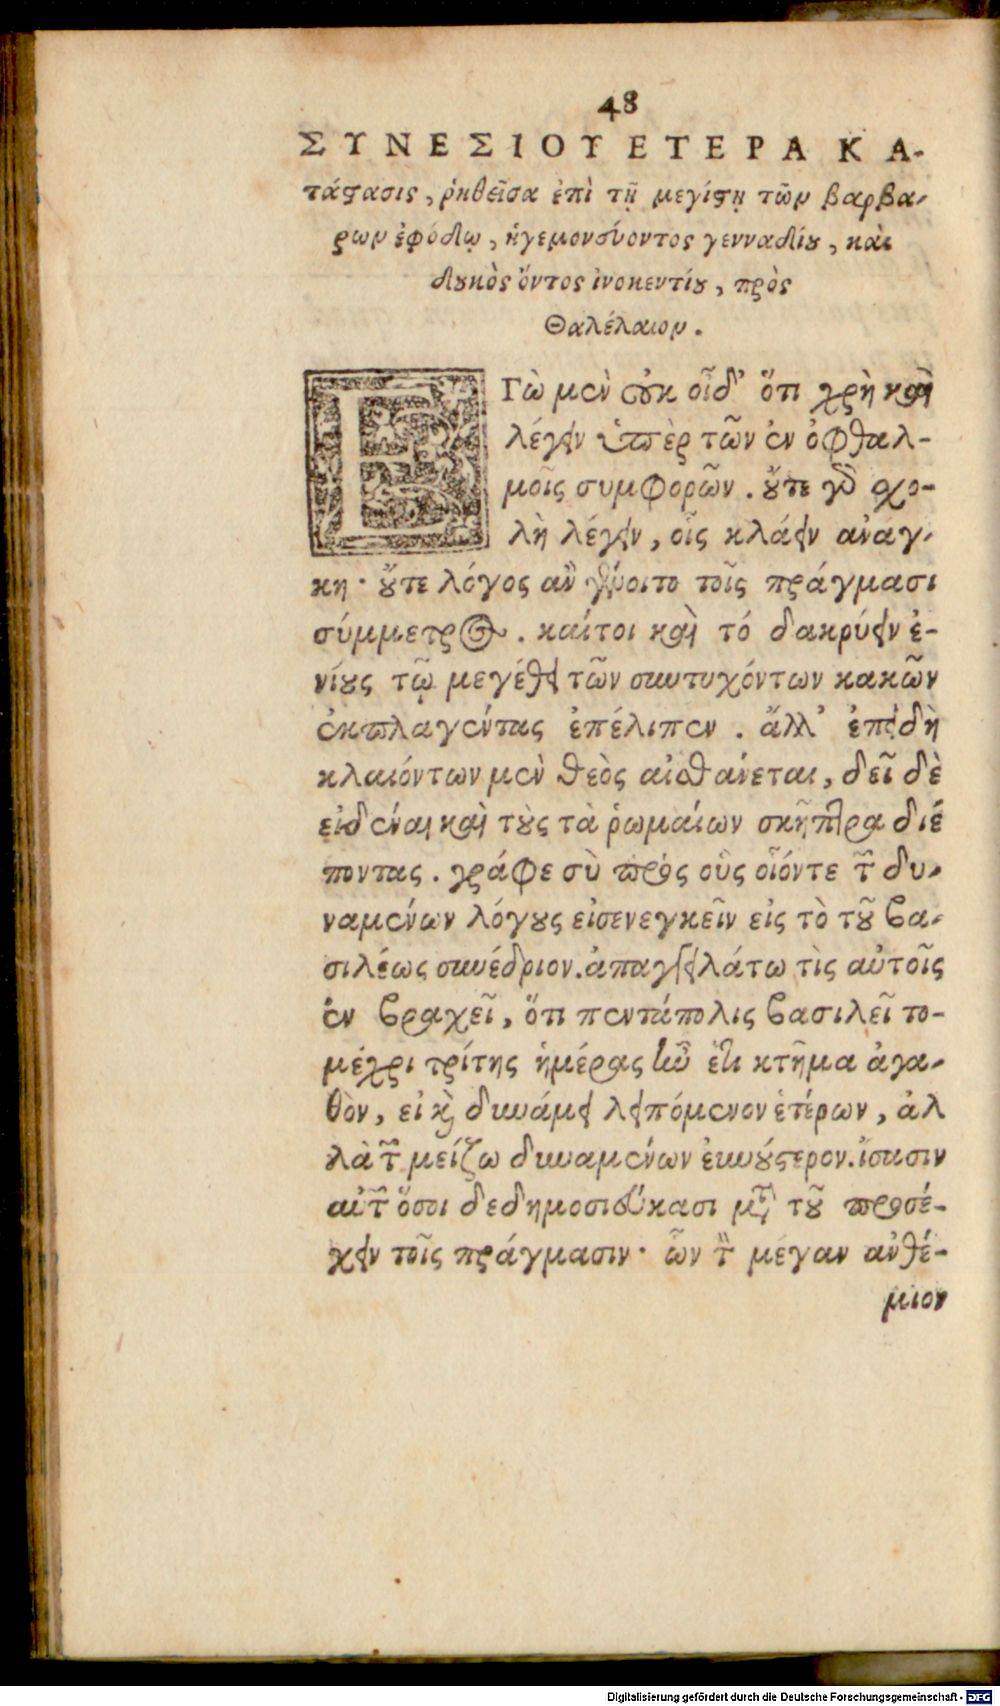 48
ΣΥΝΕΣΙΟΥ ΕΤΕΡΑ ΚΑ-
τάστασις, ῥηθεῖσα ἐπὶ τῇ μεγίστῃ τῶν βαρβά-
ρων ἐφόδῳ, ἡγεμονεύοντος γενναδίου, καὶ
δουκὸς ὄντος ἰνοκεντίου, πρὸς
Θαλέλαιον.
ΕΓὼ μὲν οὐκ οἶδ' ὅτι χρὴ καὶ
λέγειν ὑπὲρ τῶν ἐν ὀφθαλ-
μοῖς συμφορῶν. οὔτε γὰρ σχο-
λὴ λέγειν, οἷς κλάειν ἀνάγ-
κη· οὔτε λόγος ἂν γένοιτο τοῖς πράγμασι
σύμμετρος. καίτοι καὶ τό δακρύειν ἐ-
νίους τῷ μεγέθει τῶν συντυχόντων κακῶν
ἐκπλαγέντας ἐπέλιπεν. ἀλλ' ἐπειδὴ
κλαιόντων μὲν θεὸς αἰσθάνεται, δεῖ δὲ
εἰδέναι καὶ τοὺς τὰ ῥωμαίων σκῆπτρα διέ
ποντας. γράφε σὺ πρὸς οὓς οἷόντε τῶν δυ-
ναμένων λόγους εἰσενεγκεῖν εἰς τὸ τοῦ βα-
σιλέως συνέδριον. ἀπαγγειλάτω τὶς αὐτοῖς
ἐν βραχεῖ, ὅτι πεντάπολις βασιλεῖ το-
μέχρι τρίτης ἡμέρας ἦν ἔτι κτῆμα ἀγα-
θὸν, εἰ καὶ δυνάμει λειπόμενον ἑτέρων, ἀλ
λὰ τῶν μείζω δυναμένων εὐνούστερον. ἴσασιν
αὐτῶν ὅσοι δεδημοσιεύκασι μετὰ τοῦ προσέ-
χειν τοῖς πράγμασιν· ὧν τὸν μέγαν ἀνθέ-
μιον
Digitalisierung gefördert durch die Deutsche Forschungsgemeinschaft - DFG